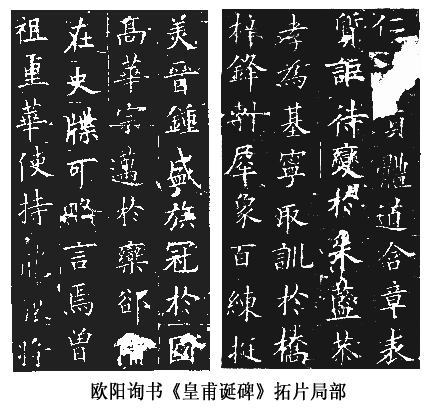 仁貞體道含章表
質詎待變於朱藍恭
孝為基寧取訓於橋
梓鋒剸犀象百練挺
美晉鍾盛族冠於國
高華宗邁於欒郤
在史牒可略言焉曾
祖重華使持
欧阳询书《皇甫诞碑》拓片局部